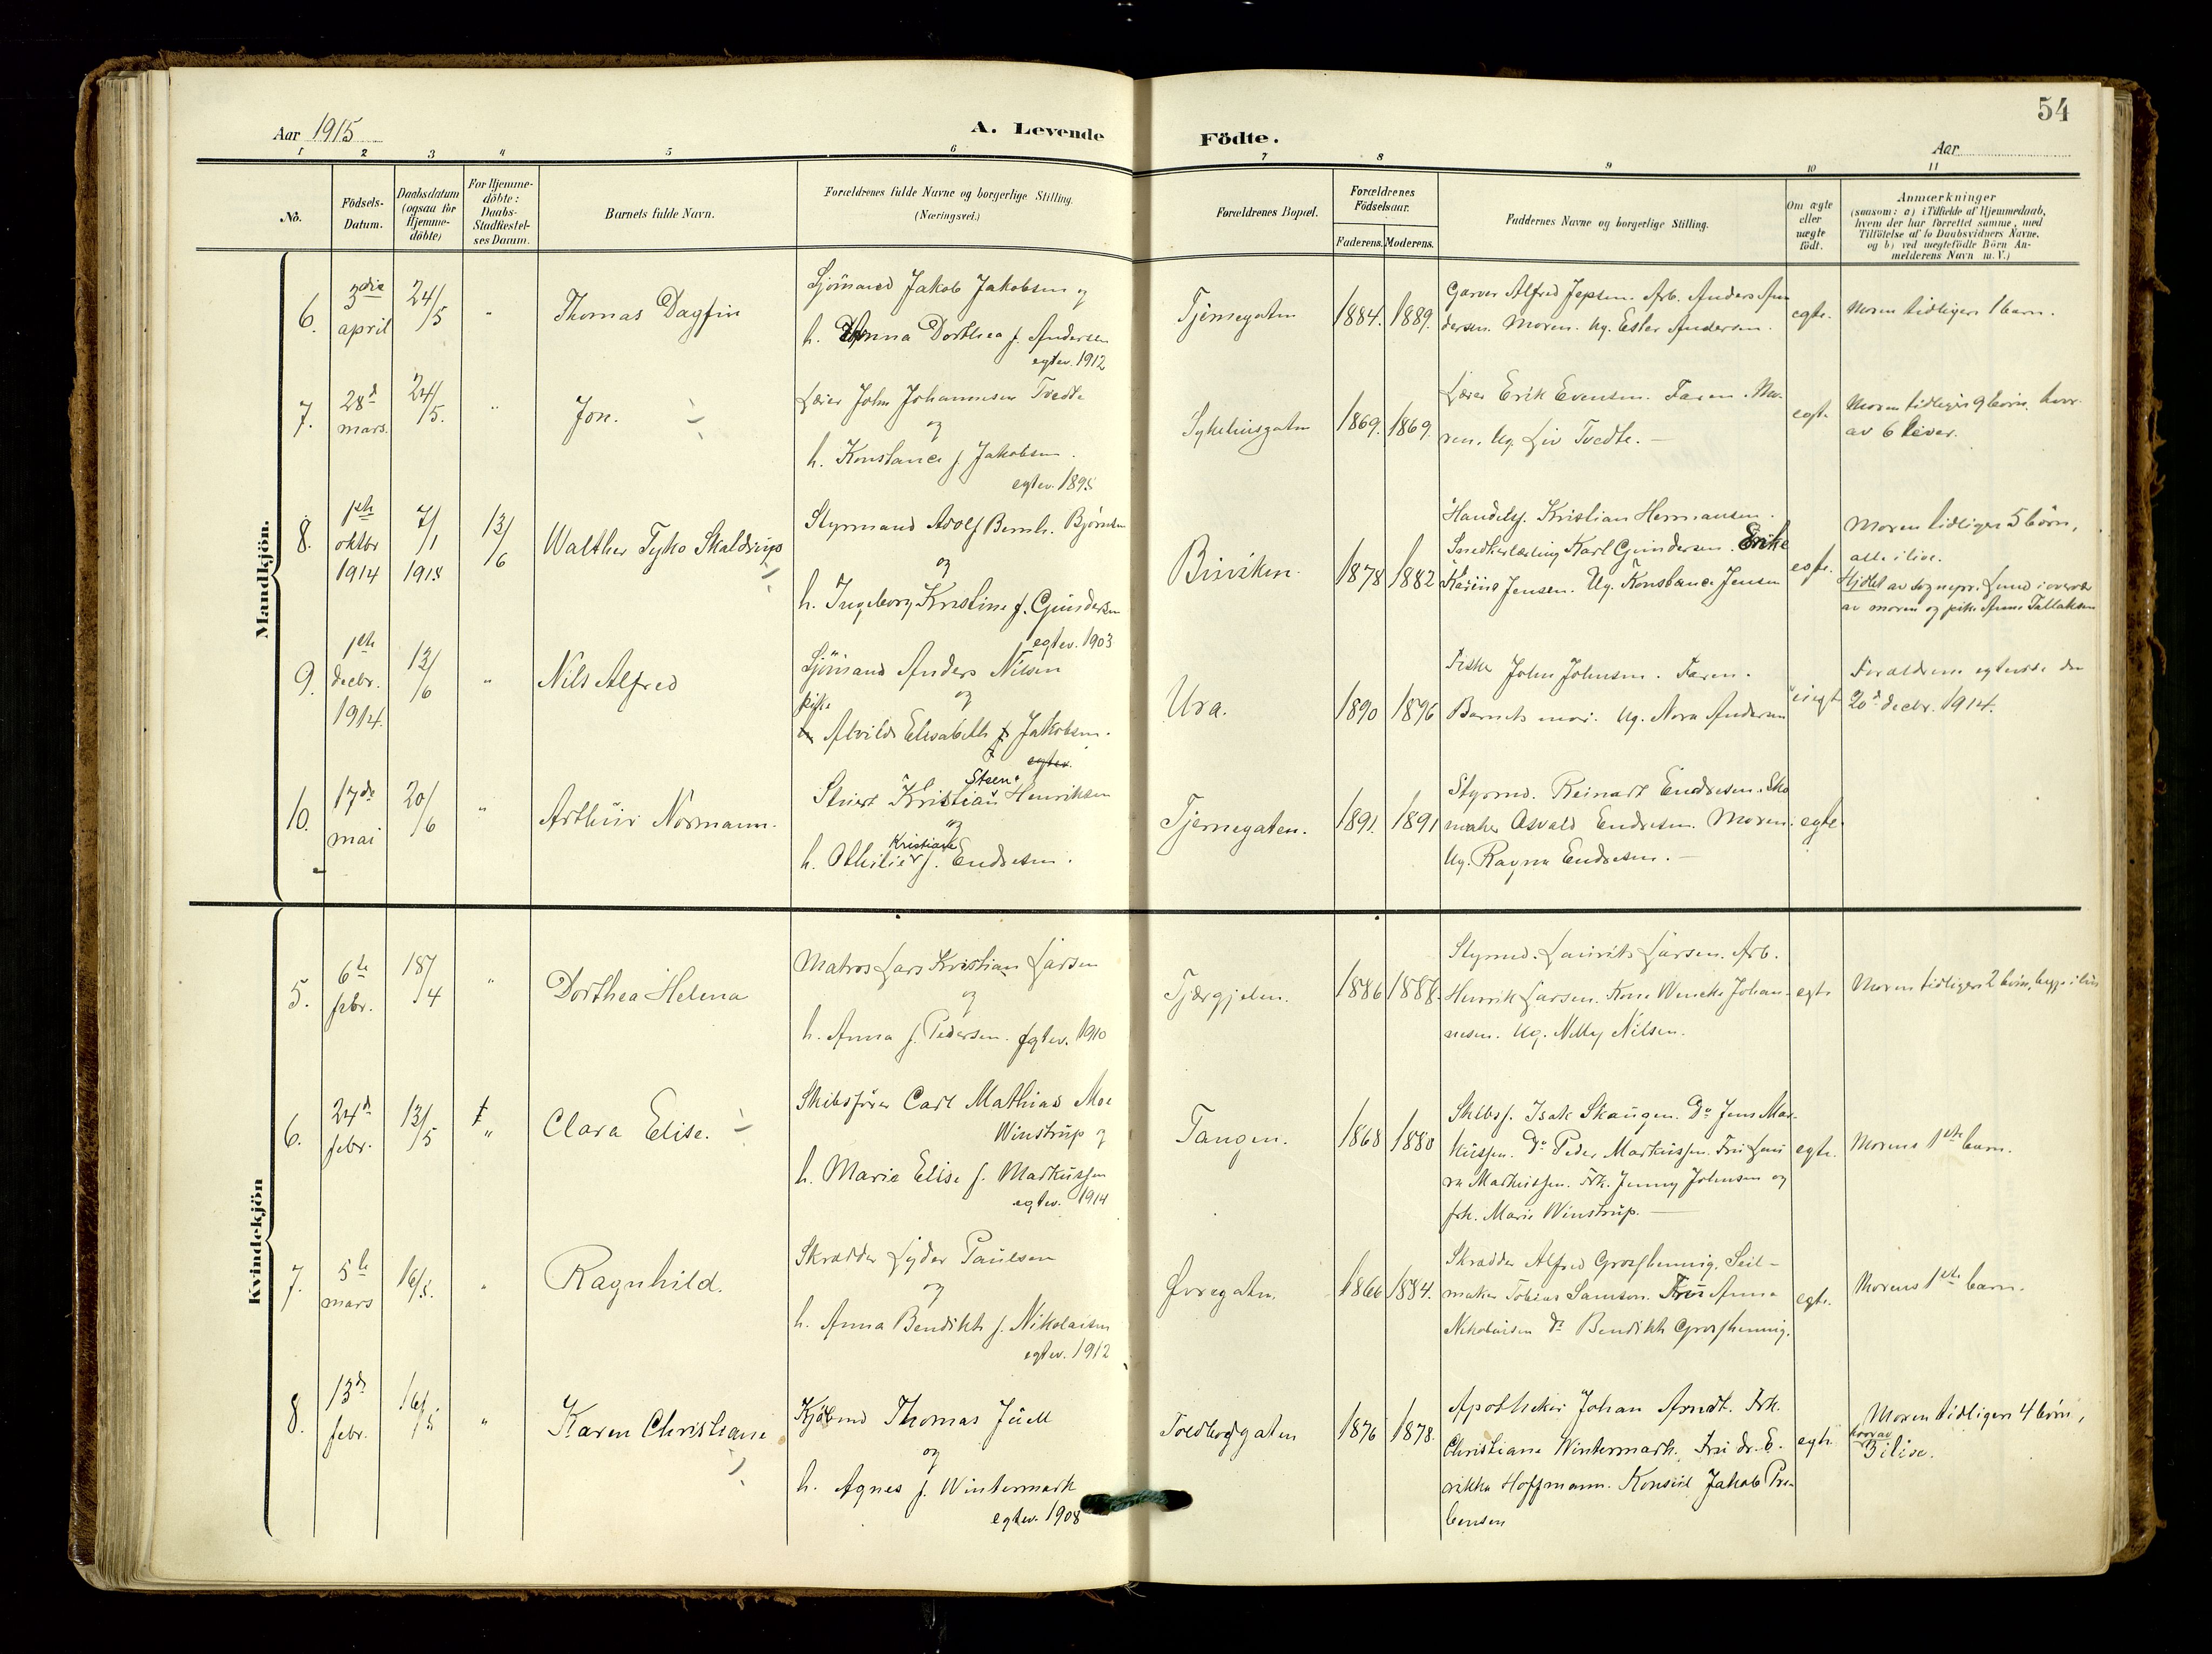 54
Aar 1915
A. Levende
Födte.
Aar
1 2 3 4 5 6 7 8 9 10 11
No.
Födsels-
Datum.
Daabsdatum
(ogsaa for
Hjemme-
döbte)
For Hjemme-
döbte:
Daabs-
Stadfæstel-
ses Datum.
Barnets fulde Navn.
Forældrenes fulde Navne og borgerlige Stilling.
(Næringsvei.)
Forældrenes Bopæl.
Forældrenes
Födselsaar.
Faderens. Moderens.
Faddernes Navne og borgerlige Stilling.
Om ægte
eller
uægte
födt.
Anmærkninger
(saasom: a) i Tilfælde af Hjemmedaab,
hvem der har forrettet samme, med
Tilföielse af to Daabsvidners Navne.
og b) ved uægtefödte Börn An-
melderens Navn m. V.)
Mandkjön.
6.
3die
april
24/5
"
Thomas Dagfin
Sjömand Jakob Jakobsen og
h. Anna Dorthea f. Andersen
egtev. 1912
Tjernegaten
1884. 1889.
Garver Alfred Jepsen. Arb. Anders An
dersen. Moren. Ug. Ester Andersen.
egte.
Moren tidligere 1 barn.
7.
28d
mars.
24/5.
"
Jon.
Lærer John Johannesen Tvedte
og
h. Konstance f. Jakobsen.
egtev. 1895
Sykehusgaten
1869. 1869.
Lærer Erik Evensen. Faren. Mo-
ren. Ug. Liv Tvedte. —
egte.
Moren tidligere 9 børn, hvor-
av 6 lever.
8.
1ste
oktbr
1914
7/1
1915
13/6
Walther Tyko Skaldrup
Styrmand Adolf Bernh. Bjørnsen
og
h. Ingeborg Kristine f. Gundersen
egtev. 1903
Binviken.
1878 1882
Handelsf. Kristian Hermansen.
Snedkerlærling Karl Gundersen. Enke
Karine Jensen. Ug. Konstance Jensen
egte.
Moren tidligere 5 børn,
alle ilive.
Hjdbt av sognepr. Lund i overvær
av moren og pike Anne Tallaksen
9.
1ste
decbr.
1914.
13/6
"
Nils Alfred
Sjömand Anders Nilsen
pike og
Alvilde Elisabeth Jakobsen.
egtev.
Ura.
1890 1896
Fisker John Johnsen. Faren.
Barnets mor. Ug. Nora Andersen
uegte
Forældrene egteviet den
20d decbr. 1914.
10.
17de
mai
20/6
"
Arthur Normann.
Steen
Stuert Kristian Henriksen
og
Kristiane
h. Othilie f. Endresen.
Tjernegaten.
1891. 1891
Styrmd. Reinart Endresen. Sko
maker Osvald Endresen. Moren.
Ug. Ragna Endresen. —
egte.
Kvindekjön
5.
6te
febr.
18/4
"
Dorthea Helena
Matros Lars Kristian Larsen
og
h. Anna f. Pedersen. Egtev. 1910
Tjærgjelen.
1886 1888.
Styrmd. Laurits Larsen. Arb.
Henrik Larsen. Kone Wencke Johan-
nesen. Ug. Nelly Nilsen.
egte
Moren tidligere 2 børn, begge ilive
6.
24d
febr.
13/5
"
Clara Elise.
Skibsfører Carl Mathias Moe
Winstrup og
h. Marie Elise f. Markussen
egtev. 1914
Tangen.
1868 1880
Skibsf. Isak Skaugen. Do Jens Mar-
kussen. Do Peder Markussen. Fru Lau
ra Markussen. Frk. Jenny Johnsen og
frk. Marie Winstrup. —
egte.
Morens 1ste barn.
7.
5te
mars
16/5.
"
Ragnhild.
Skrædder Lyder Paulsen
og
h. Anna Bendikte f. Nikolaisen
egtev. 1912
Øvregaten.
1866 1884.
Skrædder Alfred Grosshennig. Seil-
maker Tobias Samson. Fru Anna
Nikolaisen do Bendikte Grosshennig.
egte.
Morens 1ste barn.
8.
13de
febr.
16/5
"
Karen Christiane
Kjøbmd Thomas Juell
og
h. Agnes f. Wintermark
egtev. 1908
Toldbodgaten
1876 1878.
Apotheker Johan Arndt. Frk.
Christiane Wintermark. Fru dr. E-
rikka Hoffmann. Konsul Jakob Pre-
bensen
egte.
Moren tidligere 4 børn,
hvorav
3 ilive.